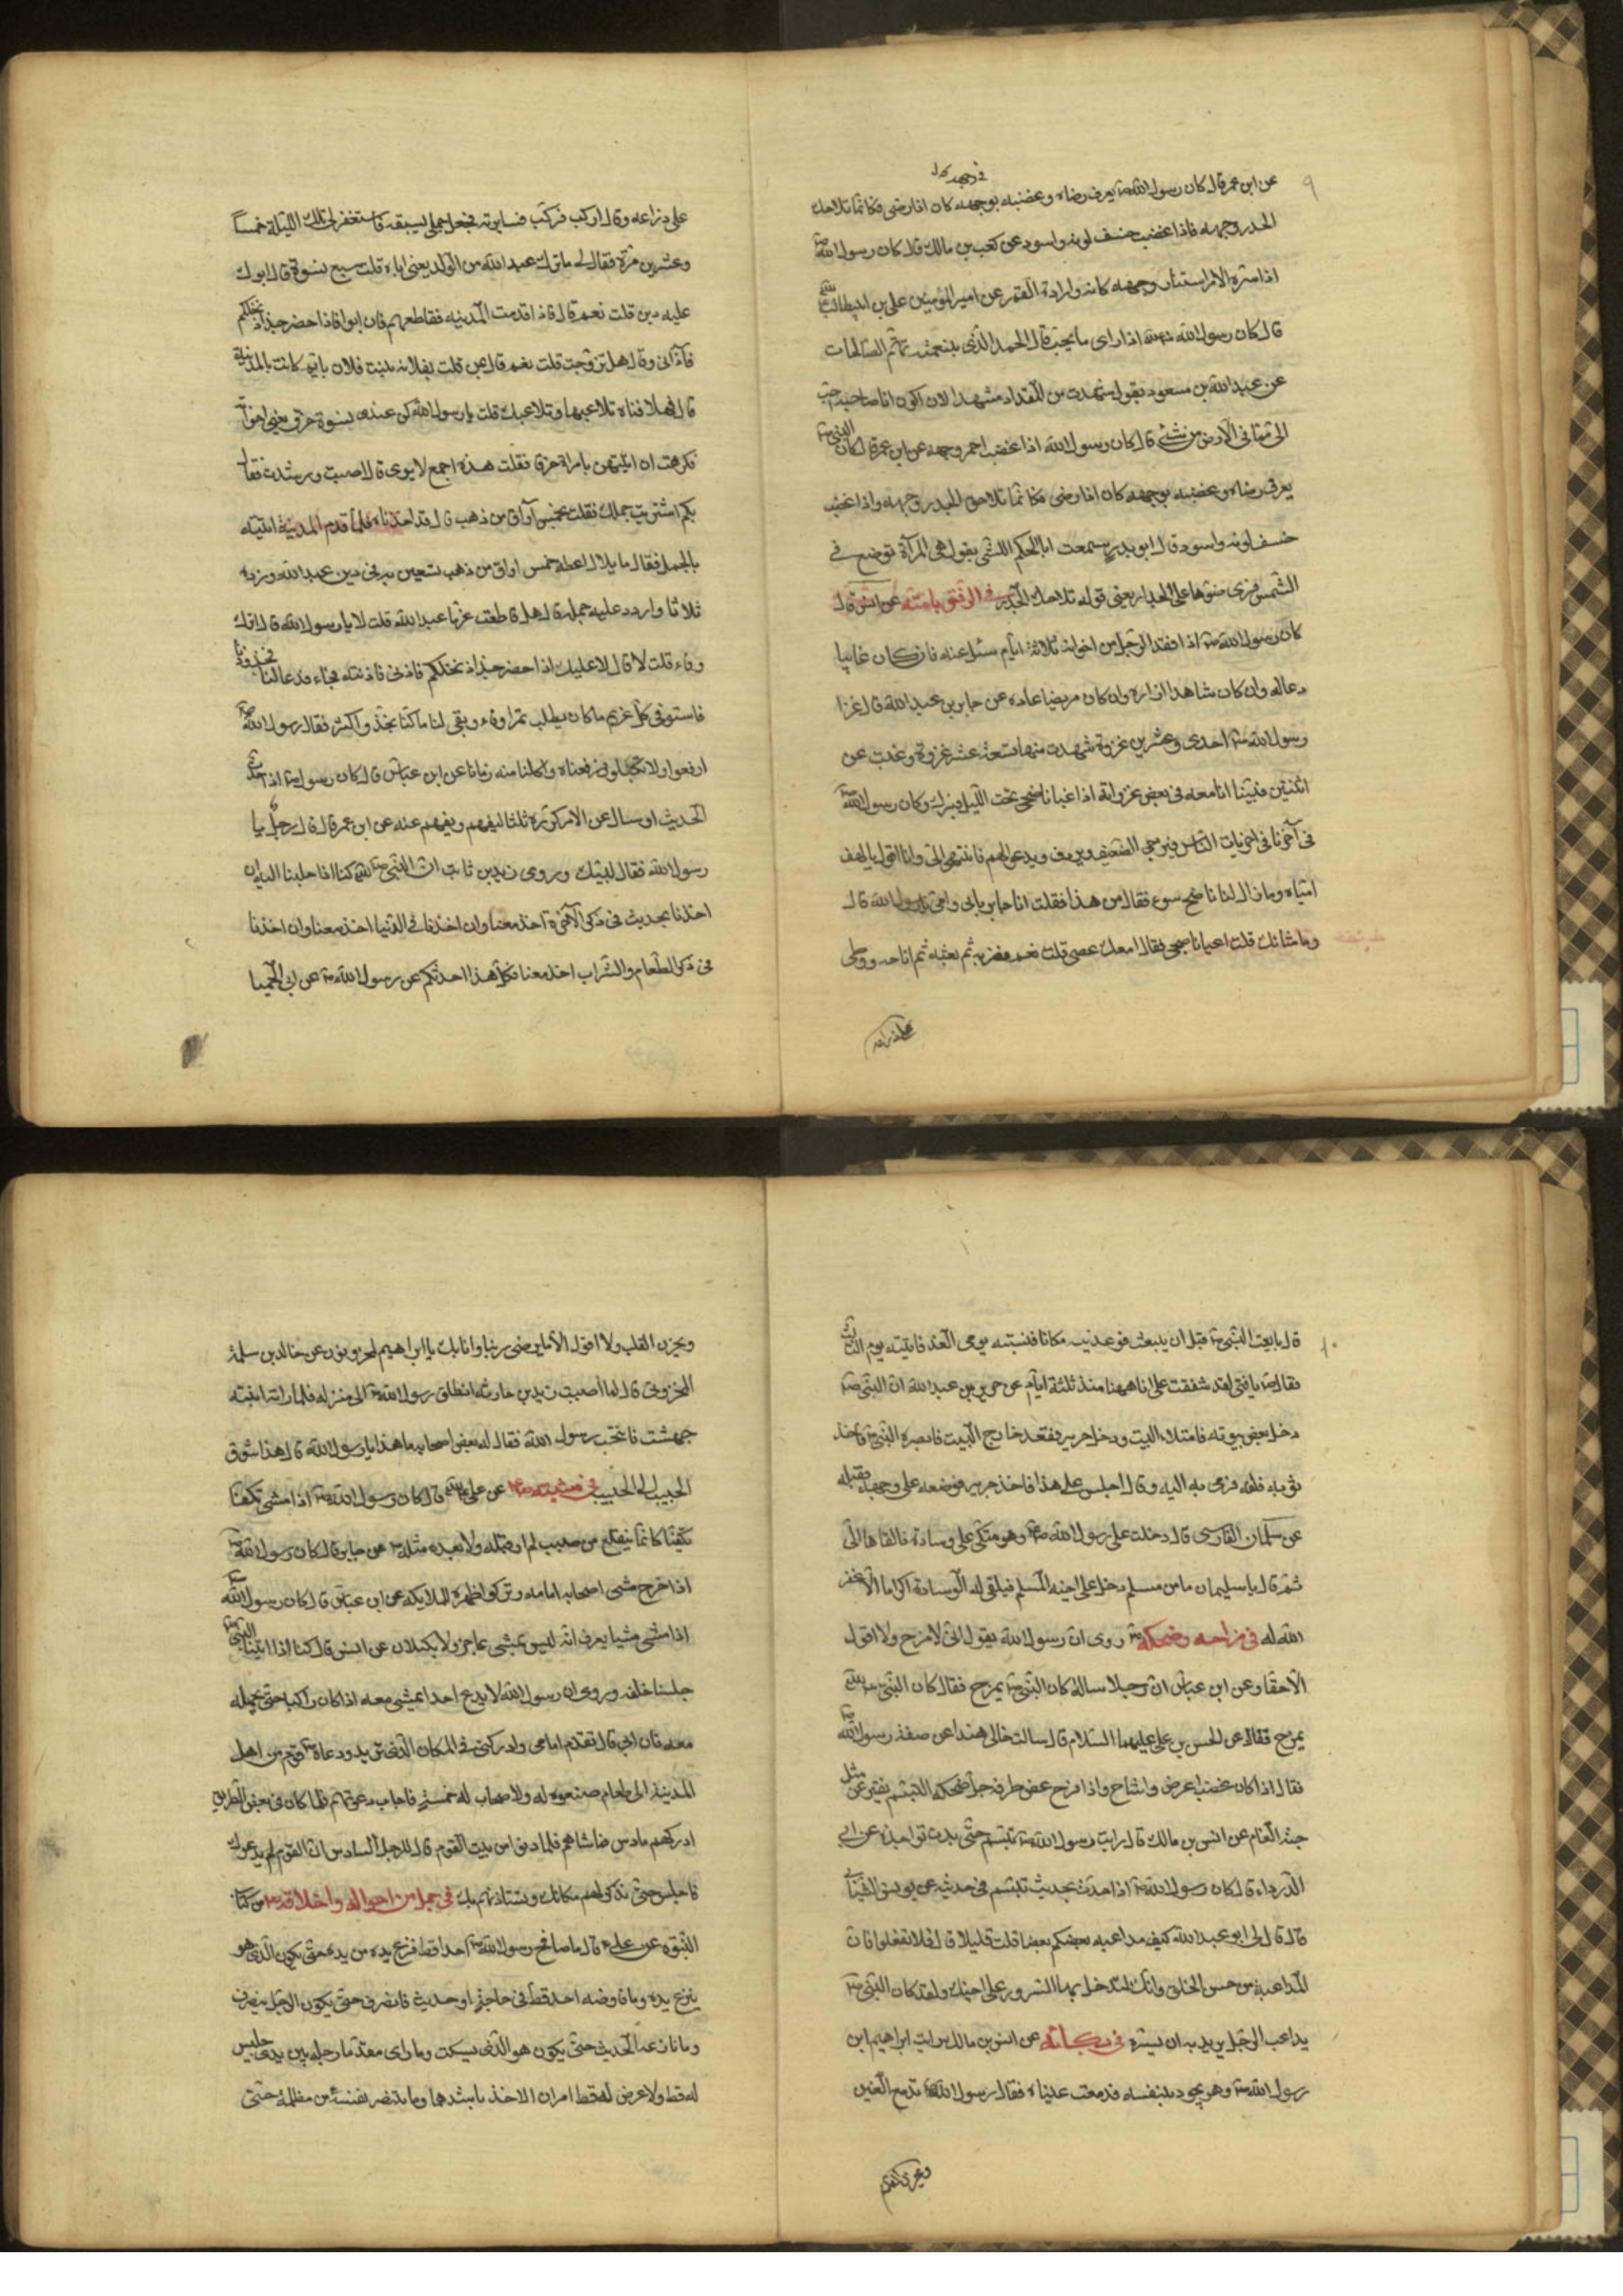 في وجهه كان
٩
عن ابن عمر قال كان رسول الله ص يعرف رضاه وغضبه بوجهه كان اذا رضى فكانما تلاحك
الجدر وجهه فاذا غضب خسف لونه واسود عن كعب بن مالك قال كان رسول الله ص
اذا سره الامر استنار وجهه كانه دارة القمر عن امير المؤمنين على بن ابيطالب
قال كان رسول الله اذا راى ما يحب قال الحمد لله الذى بنعمته تتم الصالحات
عن عبد الله بن مسعود يقول شهدت من المقداد مشهدا لان اكون انا صاحبه احب
الى مما فى الارض من شئ قال كان رسول الله اذا غضب احمر وجهه عن ابن عمر قال كان النبى ص
يعرف رضاه وغضبه بوجهه كان اذا رضى فكانما تلاحك الجدر وجهه واذا غضب
خسف لونه واسود قال ابو بدر سمعت ابا الحكم الليثى يقول هى المرآة توضع فى
الشمس فيرى ضوءها على الجدار يعنى قوله تلاحك الجدر فى الرفق بامته عن انس قال
كان رسول الله ص اذا فقد الرجل من اخوانه ثلاثة ايام سئل عنه فان كان غايبا
دعا له وان كان شاهدا زاره وان كان مريضا عاده عن جابر بن عبد الله قال غزا
رسول الله ص احدى وعشرين غزوة شهدت منها تسعة عشر غزوة وغبت عن
اثنتين فبينا انا معه فى بعض غزواته اذ اعيا ناضحى تحت الليل فبرك وكان رسول الله ص
فى آخرنا فى اخريات الناس فيزجى الضعيف ويردف ويدعو لهم فانتهى الى وانا اقول يا لهف
امتياه وما زال لنا ناضح سوء فقال من هذا فقلت انا جابر بابى وامى يا رسول الله قال
وما شانك قلت اعيا ناضحى فقال امعك عصى قلت نعم فضربه ثم بعثه ثم اناخه ووطى
على ذراعه
على ذراعه وقال اركب فركبت فسايرته فجعل جملى يسبقه فاستغفر لى تلك الليلة خمسا
وعشرين مرة فقال لى ما ترك عبد الله من الولد يعنى اباه قلت سبع نسوة قال ابوك
عليه دين قلت نعم قال فاذا قدمت المدينه فقاطعهم فان ابوا فاذا حضر جذاذ نخلكم
فآذنى وقال هل تزوجت قلت نعم قال بمن قلت بفلانه بنت فلان بايم كانت بالمدينة
قال فهلا فتاة تلاعبها وتلاعبك قلت يا رسول الله كن عندى نسوة خرق يعنى اخواته
فكرهت ان اتيهن بامراة خرقا فقلت هذه اجمع لامرى قال اصبت ورشدت فقال
بكم اشتريت جملك فقلت بخمس اواق من ذهب قال قد اخذناه فلما قدم المدينة اتيته
بالجمل فقال يا بلال اعطه خمس اواق من ذهب يستعين به فى دين عبد الله وزده
ثلاثا واردد عليه جمله قال هل قاطعت غرماء عبد الله قلت لا يا رسول الله قال اترك
وفاء قلت لا قال لا عليك اذا حضر جذاذ نخلكم فاذنى فاذنته فجاء فدعا لنا فجذذنا
فاستوفى كل غريم ما كان يطلب تمرا وفاء وبقى لنا ما كنا نجذ واكثر فقال رسول الله ص
ارفعوا ولا تكيلوا فرفعناه واكلنا منه زمانا عن ابن عباس قال كان رسول الله ص اذا حدث
الحديث او سال عن الامر كرره ثلثا ليفهم ويفهم عنه عن ابن عمر قال قال رجل يا
رسول الله فقال لبيك وروى زيد بن ثابت ان النبى ص كنا اذا جلسنا اليه ان
اخذنا بحديث فى ذكر الآخرة اخذ معنا وان اخذنا فى الدنيا اخذ معنا وان اخذنا
فى ذكر الطعام والشراب اخذ معنا فكل هذا احدثكم عن رسول الله ص عن ابى الحميسا
١٠
قال بايعت النبى ص قبل ان يبعث فوعدنيه مكانا فنسيته يومى والغد فاتيته يوم الثالث
فقال ص يا فتى لقد شققت على انا ههنا منذ ثلثة ايام عن جرير بن عبد الله ان النبى ص
دخل بعض بيوته فامتلاء البيت ودخل جرير فقعد خارج البيت فابصره النبى ص فاخذ
ثوبه فلفه فرمى به اليه وقال اجلس على هذا فاخذ جرير فوضعه على وجهه فقبله
عن سلمان الفارسى قال دخلت على رسول الله ص وهو متكى على وسادة فالقاها الى
ثم قال يا سليمان ما من مسلم دخل على اخيه المسلم فيلقى له الوسادة اكراما الا غفر
الله له فى مزاحه وضحكه ص روى ان رسول الله يقول انى لامزح ولا اقول
الا حقا وعن ابن عباس ان رجلا ساله كان النبى ص يمزح فقال كان النبى ص
يمزح فقال عن الحسن بن على عليهما السلام قال سالت خالى هندا عن صفة رسول الله ص
فقال اذا كان غضب اعرض واشاح واذا فرح غض طرفه جل ضحكه التبسم يفتر عن مثل
حبة الغمام عن انس بن مالك قال رايت رسول الله ص تبسم حتى بدت نواجذه عن ابى
الدرداء قال كان رسول الله ص اذا حدث بحديث تبسم فى حديثه عن يونس الشيبانى
قال قال لى ابو عبد الله كيف مداعبه بعضكم بعضا قلت قليلا قال افلا تفعلوا فان
المداعبة من حسن الخلق وانك لتدخل بها السرور على اخيك ولقد كان النبى ص
يداعب الرجل يريد به ان يسره فى بكائه عن انس بن مالك رايت ابراهيم ابن
رسول الله ص وهو يجود بنفسه فدمعت عيناه فقال رسول الله ص تدمع العين
ويحزن القلب
ويحزن القلب ولا اقول الا ما يرضى ربنا وانا بك يا ابراهيم لمحزونون عن خالد بن سلمة
المخزومى قال لما اصيب زيد بن حارثه انطلق رسول الله ص الى منزله فلما راته ابنته
جهشت فانتحب رسول الله فقال له بعض اصحابه ما هذا يا رسول الله قال هذا شوق
الحبيب الى الحبيب فى مشيته ص عن على قال كان رسول الله ص اذا مشى تكفا
تكفيا كانما يتقلع من صبب لم ار قبله ولا بعده مثله ص عن جابر قال كان رسول الله ص
اذا خرج مشى اصحابه امامه وتركوا ظهره للملايكه عن ابن عباس قال كان رسول الله
اذا مشى مشيا يعرف انه ليس بمشى عاجز ولا بكسلان عن انس قال كنا اذا اتينا النبى ص
جلسنا خلفه وروى ان رسول الله لا يدع احدا يمشى معه اذا كان راكبا حتى يحمله
معه فان ابى قال تقدم امامى وادركنى فى المكان الذى تريد ودعاه ص قوم من اهل
المدينة الى طعام صنعوه له ولاصحاب له خمسة فاجاب دعوتهم فلما كان فى بعض الطريق
ادركهم سادس فماشاهم فلما دنوا من بيت القوم قال للرجل السادس ان القوم لم يدعوك
فاجلس حتى نذكر لهم مكانك ونستاذنهم بك فى جمل من احواله واخلاقه ص من كتاب
النبوة عن على قال ما صافح رسول الله ص احدا قط فنزع يده من يده حتى يكون الذى هو
ينزع يده وما فاوضه احد قط فى حاجة او حديث فانصرف حتى يكون الرجل ينصرف
وما نازعه الحديث حتى يكون هو الذى يسكت وما راى مقدما رجله بين يدى جليس
له قط ولا عرض له قط امران الا اخذ باشدهما وما انتصر لنفسه من مظلمة حتى